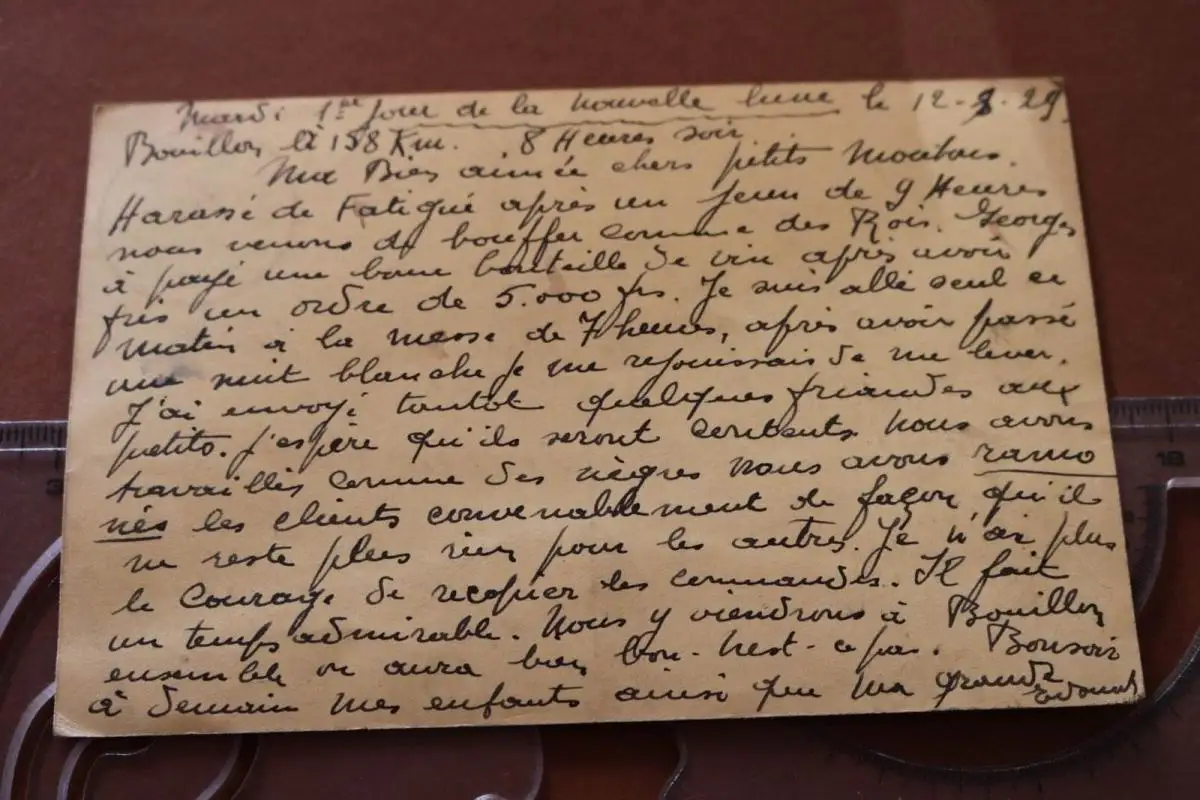 Mardi 1er Jour de la nouvelle lune le 12-3-29
Bouillon à 158 Km. 8 Heures soir
Ma Bien aimée chers petits moutons.
Harassé de Fatigué après un jeun de 9 Heures
nous venons de bouffer comme des Rois. Georges
à payé une bonne bouteille de vin après avoir
pris un ordre de 5.000 frs. Je suis allé seul ce
matin à la messe de 7 heures, après avoir passé
une nuit blanche je me rejouissais de me lever.
J'ai envoyé tantot quelques friandes aux
petits. j'espère qu'ils seront contents nous avons
travaillés comme des nègres nous avons ramo
nés les clients convenablement de façon qu'il
ne reste plus rien pour les autres. Je n'ai plus
le courage de recopier les commandes. Il fait
un temps admirable. Nous y viendrons à Bouillon
ensemble on aura bien bon. nest-ce pas. Bonsoir
à demain mes enfants ainsi que ma grande
Edouard
18
3